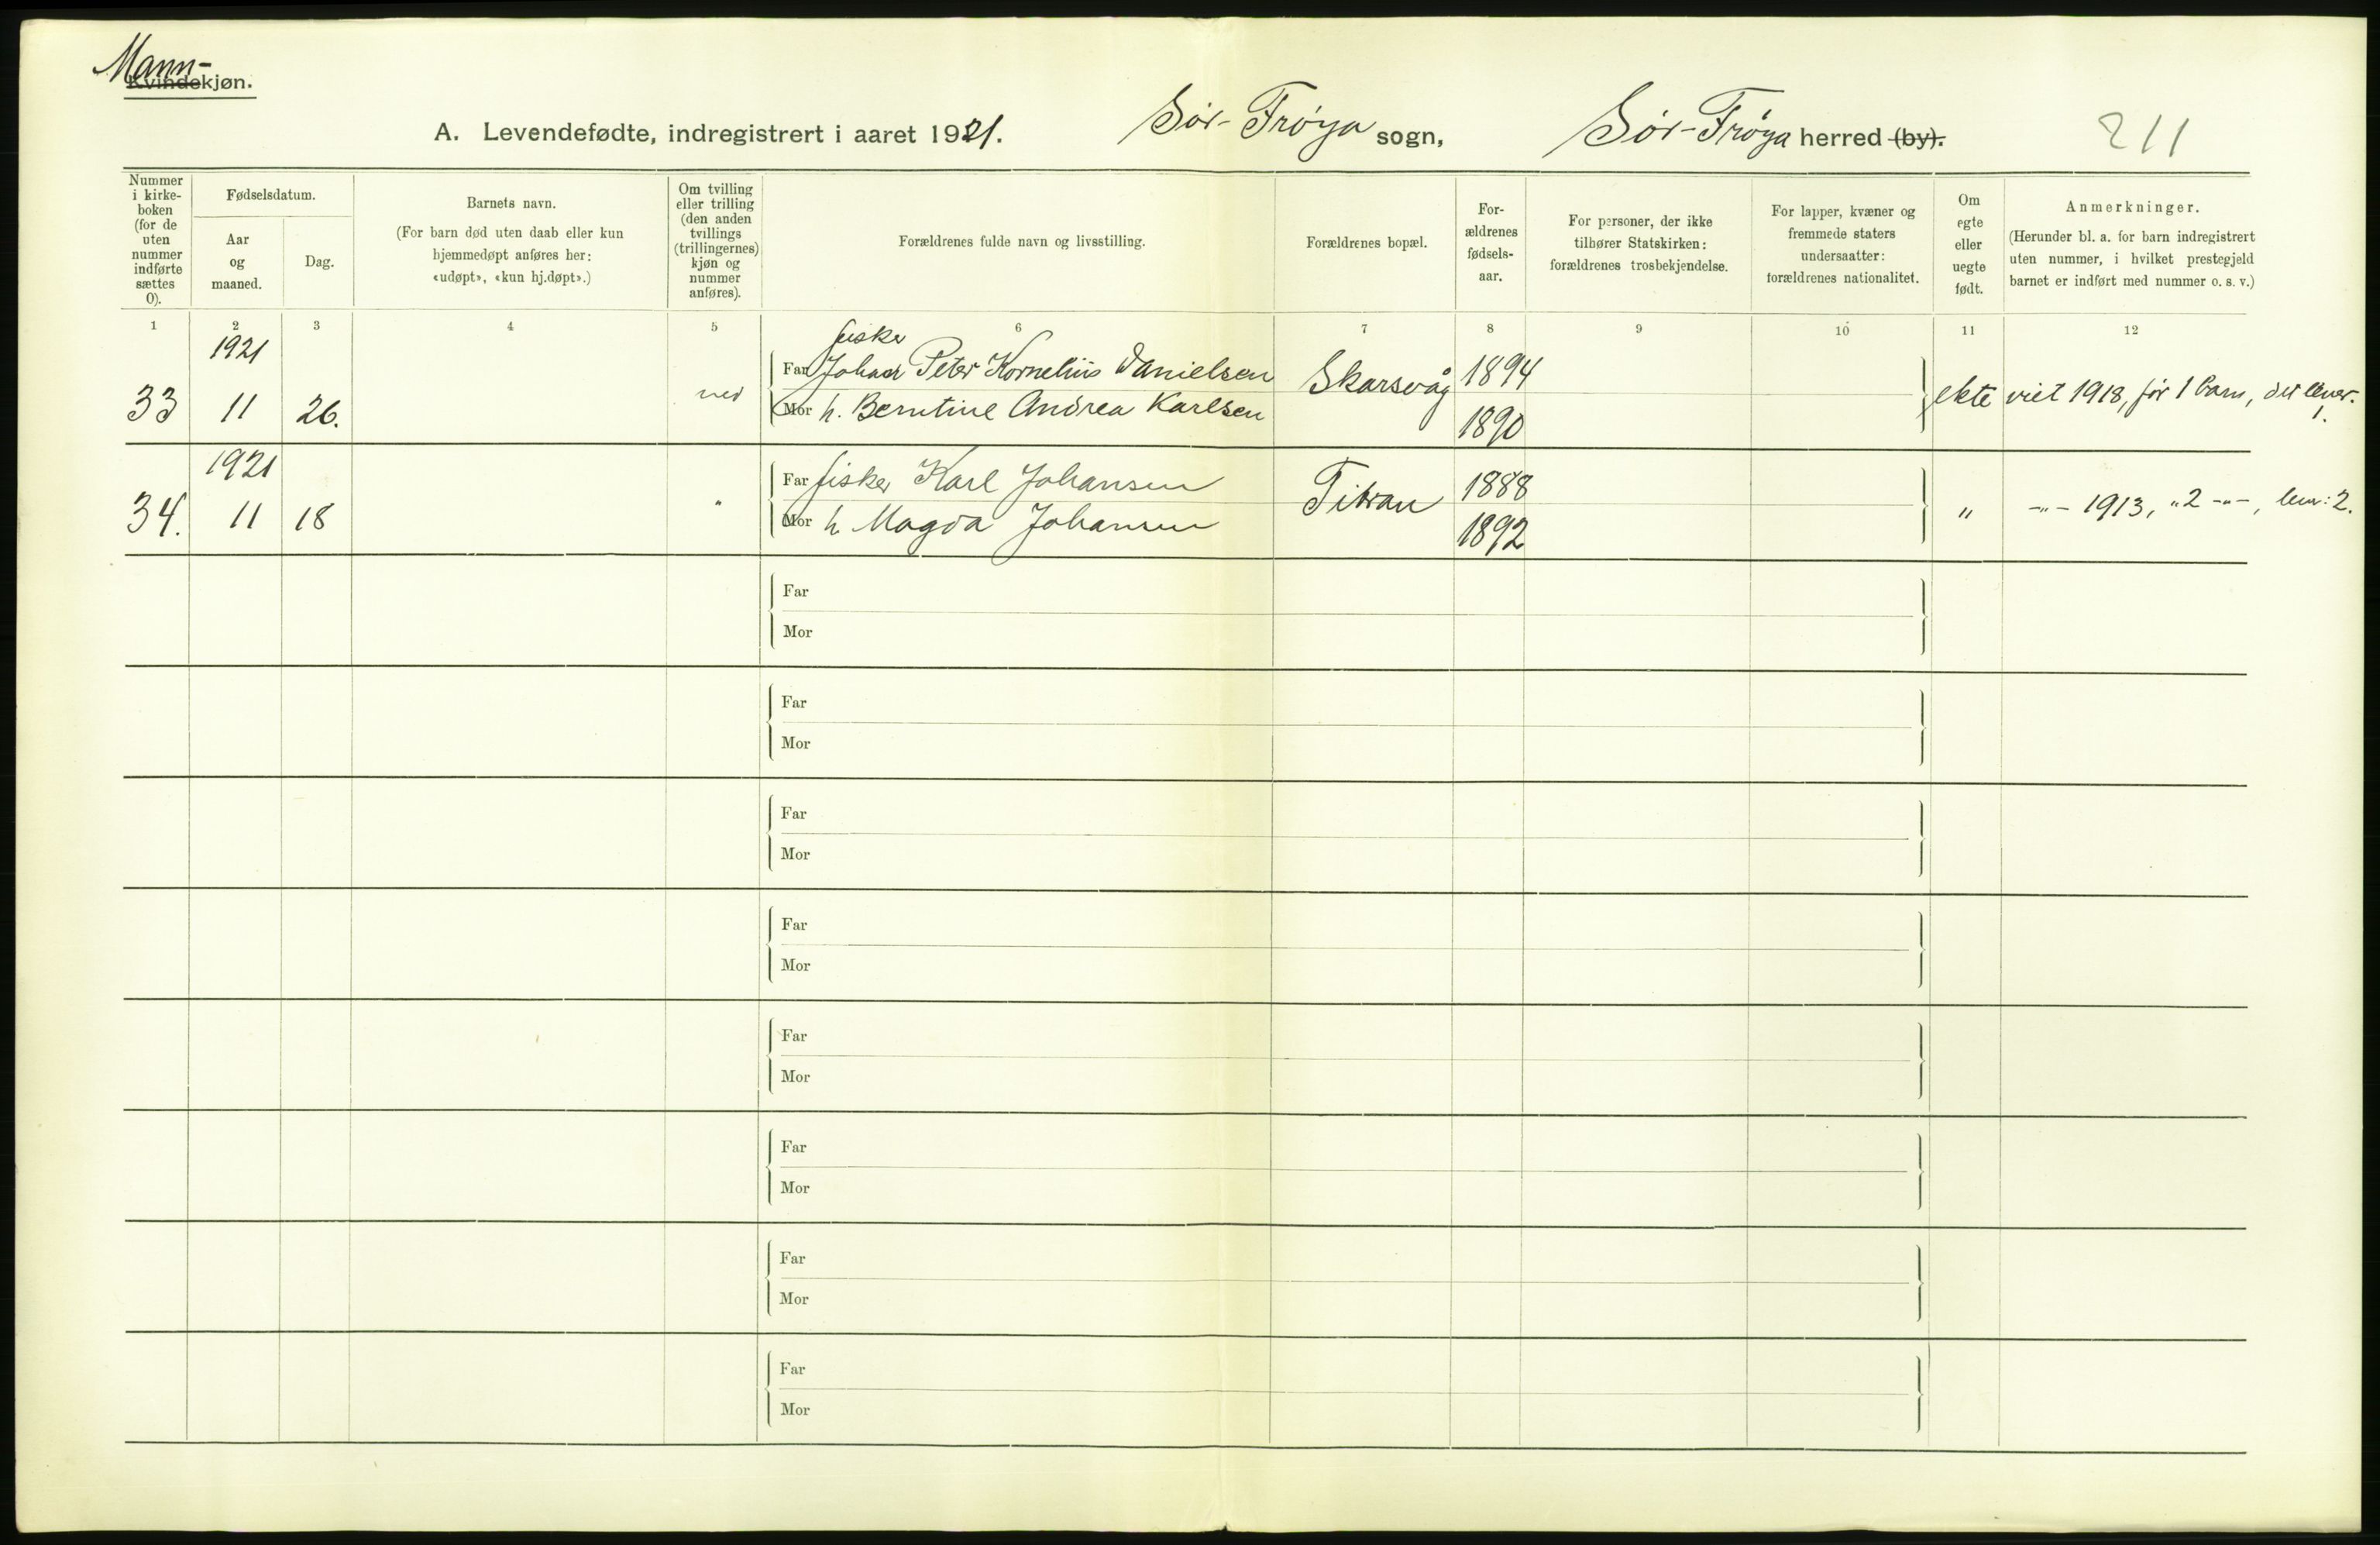 Mann-
Kvindekjøn.
A. Levendefødte, indregistrert i aaret 1921. Sør-Frøya sogn, Sør-Frøya herred (by). 211
Nummer i kirke-boken (for de uten nummer indførte sættes 0).
Fødselsdatum.
Aar og maaned.
Dag.
Barnets navn.
(For barn død uten daab eller kun hjemmedøpt anføres her: «udøpt», «kun hj.døpt».)
Om tvilling eller trilling (den anden tvillings (trillingernes) kjøn og nummer anføres).
Forældrenes fulde navn og livsstilling.
Forældrenes bopæl.
For-ældrenes fødsels-aar.
For personer, der ikke tilhører Statskirken: forældrenes trosbekjendelse.
For lapper, kvæner og fremmede staters undersaatter: forældrenes nationalitet.
Om egte eller uegte født.
Anmerkninger.
(Herunder bl. a. for barn indregistrert uten nummer, i hvilket prestegjeld barnet er indført med nummer o. s. v.)
1 2 3 4 5 6 7 8 9 10 11 12
1921 fisker
Far Johan Peter Kornelius Danielsen Skarsvåg 1894
33 11 26. nei Mor h. Berntine Andrea Karlsen 1890 ekte viet 1918, før 1 barn, det lever.
1.
1921
Far fisker Karl Johansen Titran 1888
34. 11 18 " Mor h. Magda Johansen 1892 " -"- 1913, " 2 -"-, lev: 2.
Far
Mor
Far
Mor
Far
Mor
Far
Mor
Far
Mor
Far
Mor
Far
Mor
Far
Mor